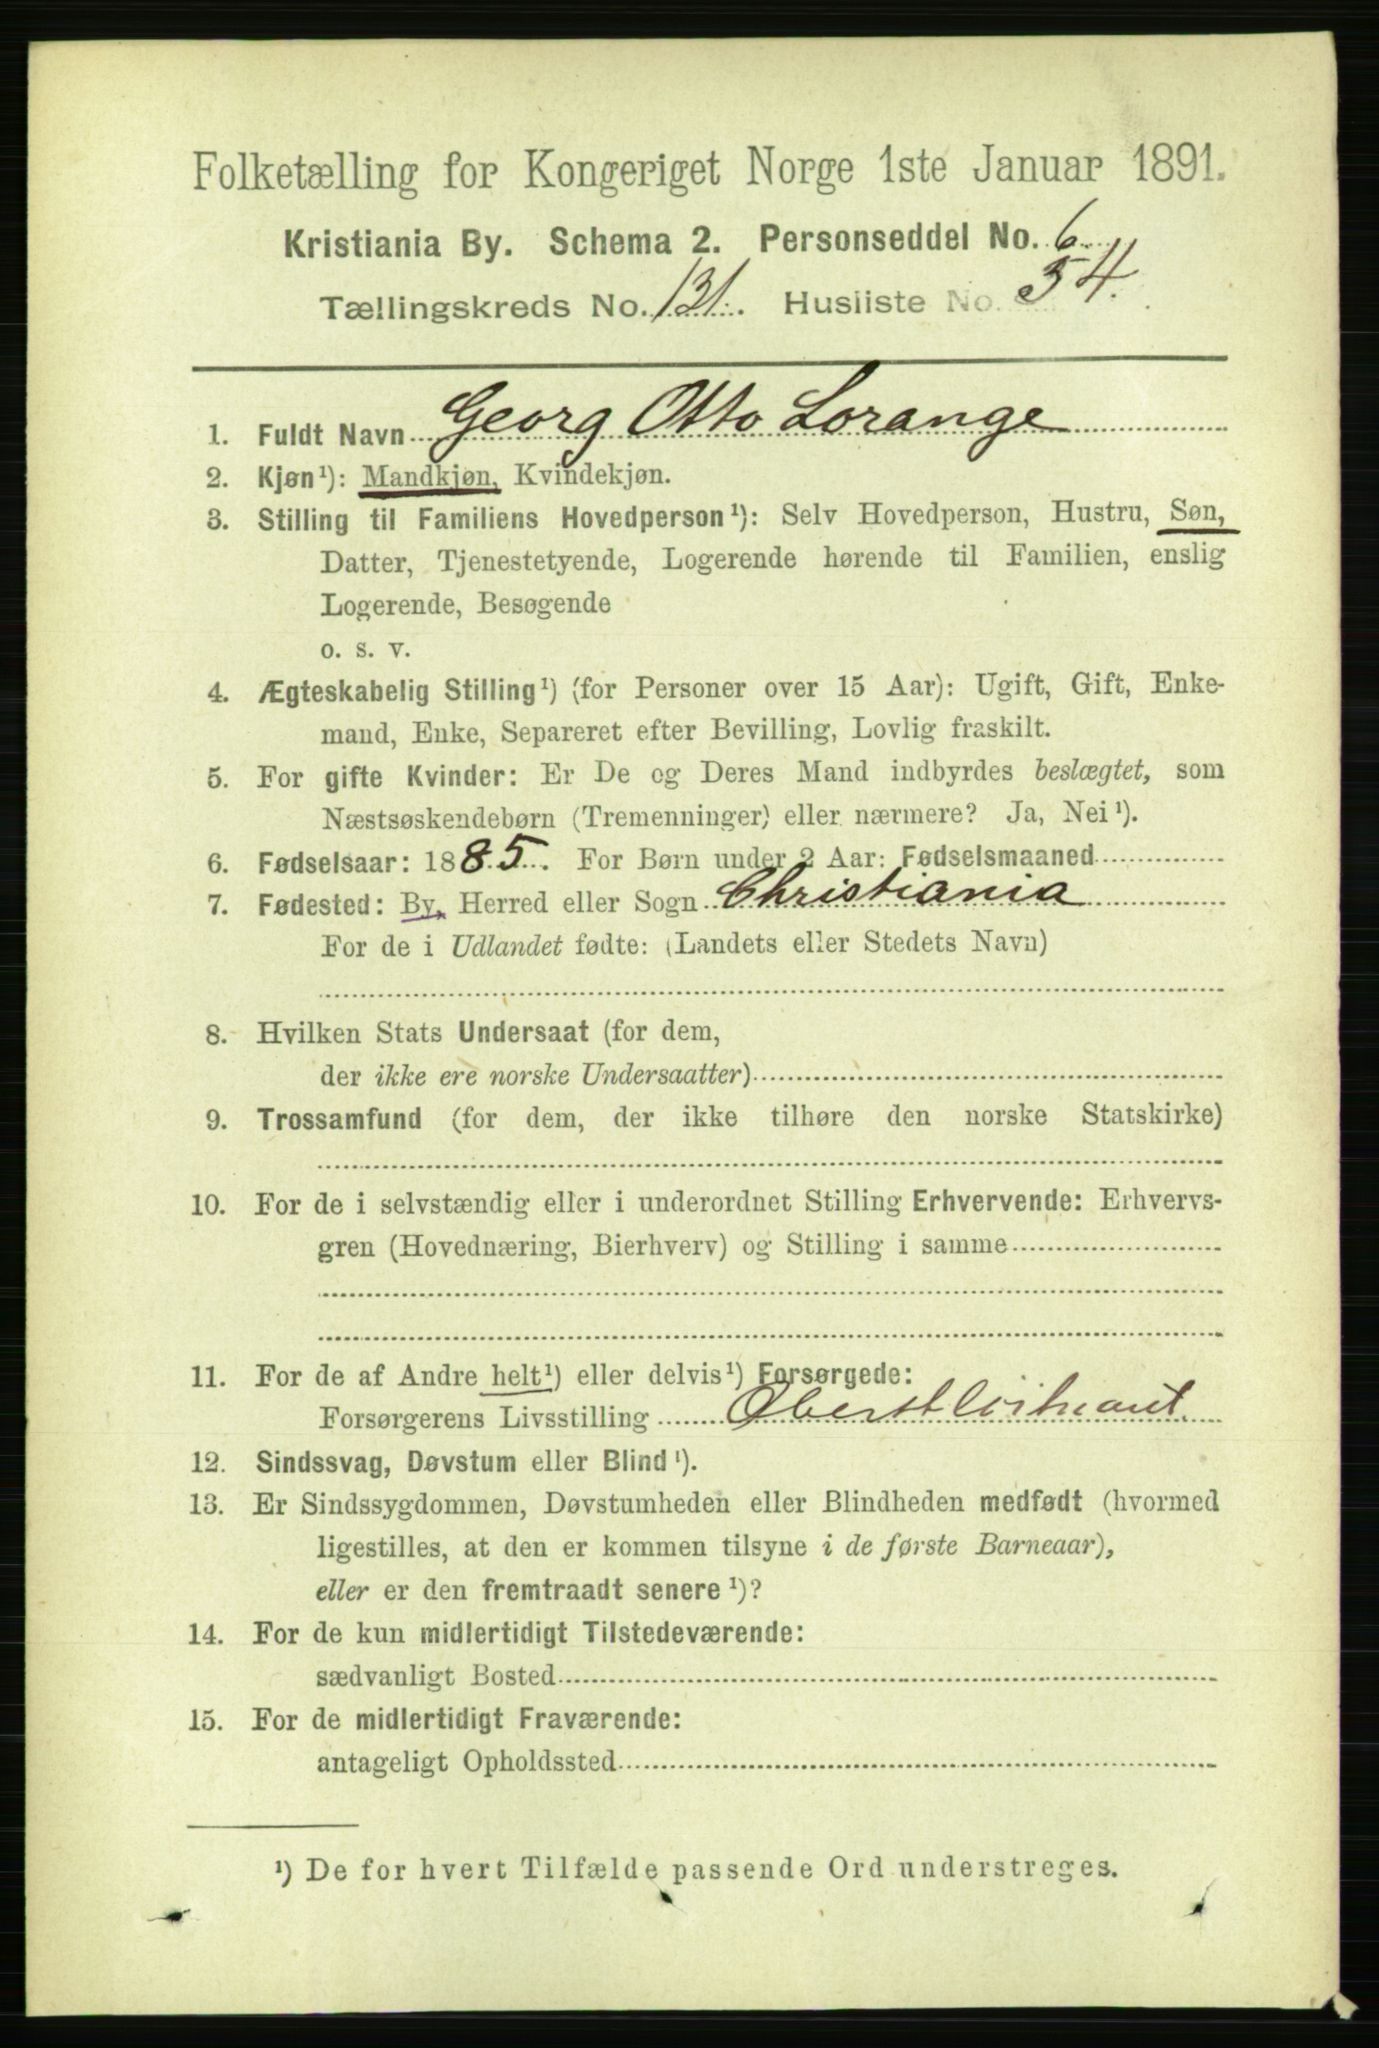 Folketælling for Kongeriget Norge 1ste Januar 1891.
Kristiania By. Schema 2. Personseddel No. 6
Tællingskreds No. 131. Husliste No. 54.
1. Fuldt Navn Georg Otto Lorange
2. Kjøn¹): Mandkjøn, Kvindekjøn.
3. Stilling til Familiens Hovedperson¹): Selv Hovedperson, Hustru, Søn,
Datter, Tjenestetyende, Logerende hørende til Familien, enslig
Logerende, Besøgende
o. s. v.
4. Ægteskabelig Stilling¹) (for Personer over 15 Aar): Ugift, Gift, Enke-
mand, Enke, Separeret efter Bevilling, Lovlig fraskilt.
5. For gifte Kvinder: Er De og Deres Mand indbyrdes beslægtet, som
Næstsøskendebørn (Tremenninger) eller nærmere? Ja, Nei¹).
6. Fødselsaar: 1885. For Børn under 2 Aar: Fødselsmaaned
7. Fødested: By, Herred eller Sogn Christiania
For de i Udlandet fødte: (Landets eller Stedets Navn)
8. Hvilken Stats Undersaat (for dem,
der ikke ere norske Undersaatter)
9. Trossamfund (for dem, der ikke tilhøre den norske Statskirke)
10. For de i selvstændig eller i underordnet Stilling Erhvervende: Erhvervs-
gren (Hovednæring, Bierhverv) og Stilling i samme
11. For de af Andre helt¹) eller delvis¹) Forsørgede:
Forsørgerens Livsstilling Oberstlöitnant.
12. Sindssvag, Døvstum eller Blind¹).
13. Er Sindssygdommen, Døvstumheden eller Blindheden medfødt (hvormed
ligestilles, at den er kommen tilsyne i de første Barneaar),
eller er den fremtraadt senere¹)?
14. For de kun midlertidigt Tilstedeværende:
sædvanligt Bosted
15. For de midlertidigt Fraværende:
antageligt Opholdssted
¹) De for hvert Tilfælde passende Ord understreges.